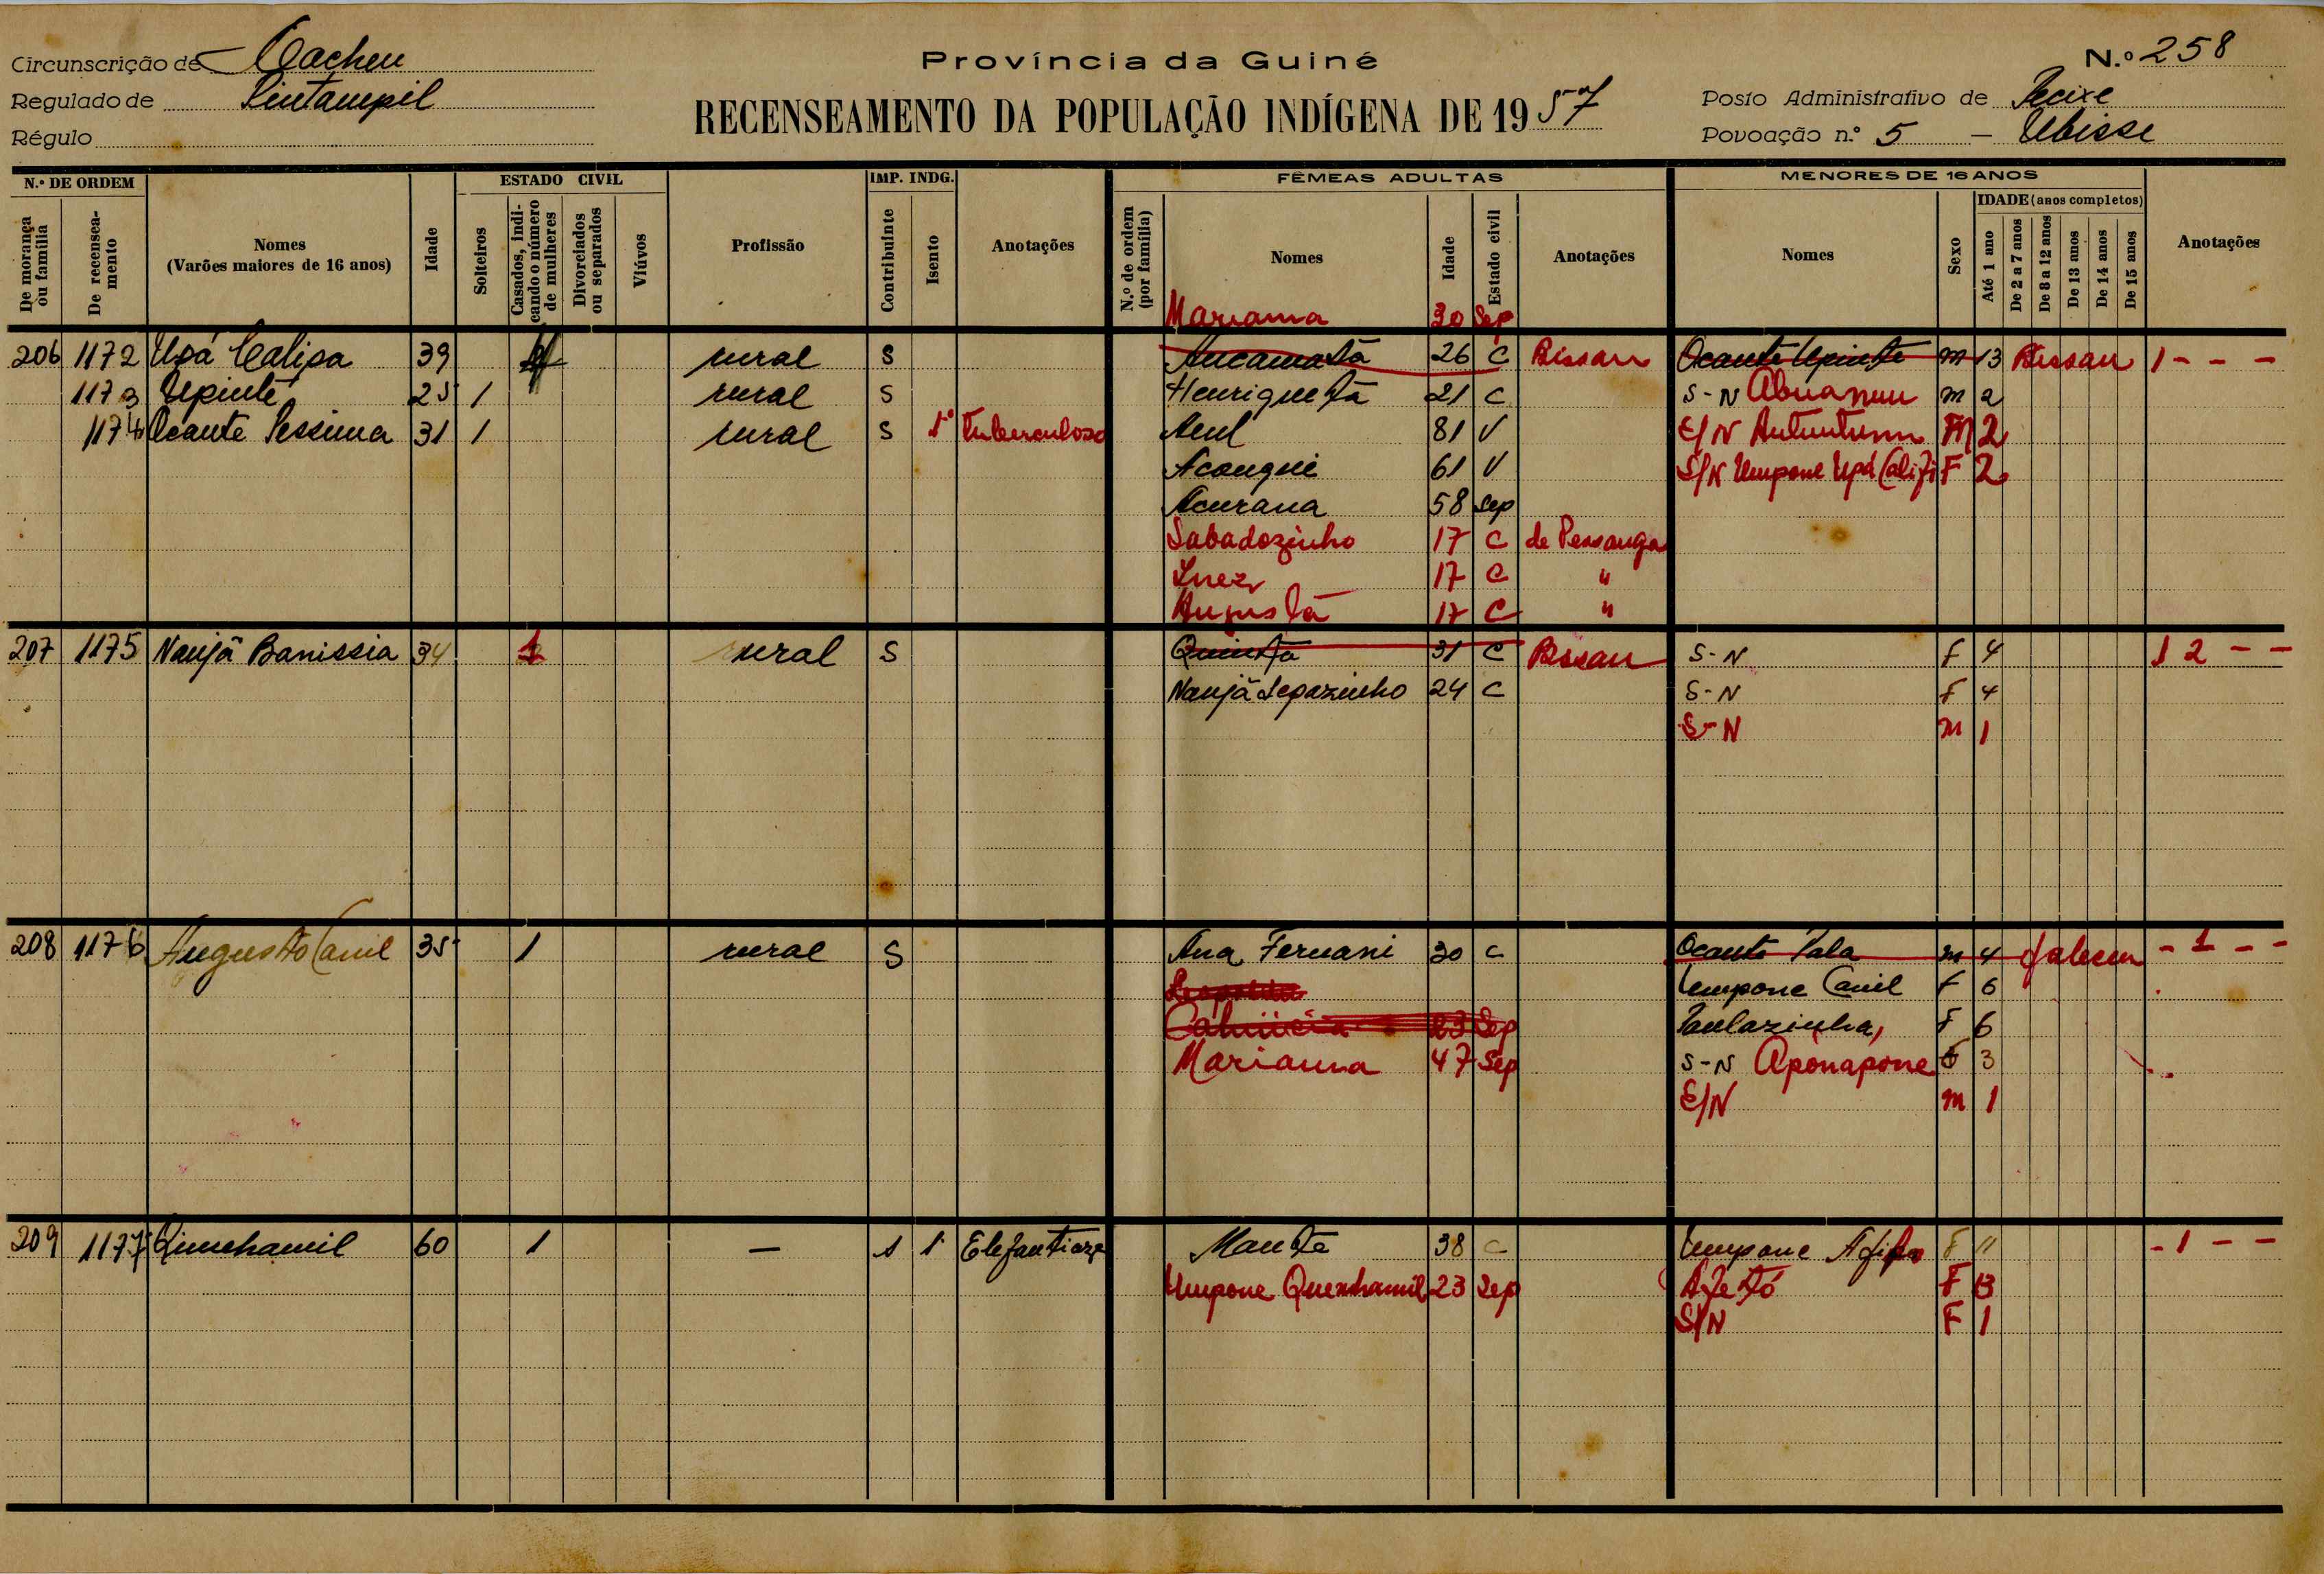 Circunscrição de Cacheu
Regulado de Pintampil
Régulo
Província da Guiné
RECENSEAMENTO DA POPULAÇÃO INDÍGENA DE 1957
N.º 258
Posto Administrativo de Jecixe
Povoação n.º 5 — Ubisse
N.º DE ORDEM
De morança ou família
De recenseamento
Nomes (Varões maiores de 16 anos)
Idade
ESTADO CIVIL
Solteiros
Casados, indicando o número de mulheres
Divorciados ou separados
Viúvos
Profissão
IMP. INDG.
Contribuinte
Isento
Anotações
FÊMEAS ADULTAS
N.º de ordem (por família)
Nomes
Idade
Estado civil
Anotações
MENORES DE 16 ANOS
Nomes
Sexo
IDADE (anos completos)
Até 1 ano
De 2 a 7 anos
De 8 a 12 anos
De 13 anos
De 14 anos
De 15 anos
Anotações
Mariama 30 Sep
206 1172 Upá Calipa 39 rural S 26 C Bissau Ocante Upinte m 13 Bissau 1 - - -
1173 Upinte 25 1 rural S Henriqueta 21 C S-N Abuanum m 2
1174 Ocante Pessima 31 1 rural S 1º Tuberculoso Aeul 81 V S/N M 2
Acongui 61 V S/N Umpone Upá F 2
Acurana 58 Sep
Sabadozinho 17 C de Pessanga
Inez 17 C "
Augusta 17 C "
207 1175 Naujã Banissia 34 1 rural S Quinta 31 C Bissau S-N F 4 1 2 - -
Naujã Sepazinho 24 C S-N F 4
S-N m 1
208 1176 Augusto Canil 35 1 rural S Ana Fernani 30 C Ocante Pala m 4 faleceu - 1 - -
Umpone Canil F 6
23 Sep Paulazinha F 6
Marianna 47 Sep S-N Aponapone F 3
S/N m 1
209 1177 Quinchamil 60 1 — 1 1 Elefantiaze 38 C Umpone F 11 - 1 - -
Umpone Quenchamil 23 Sep F 13
S/N F 1